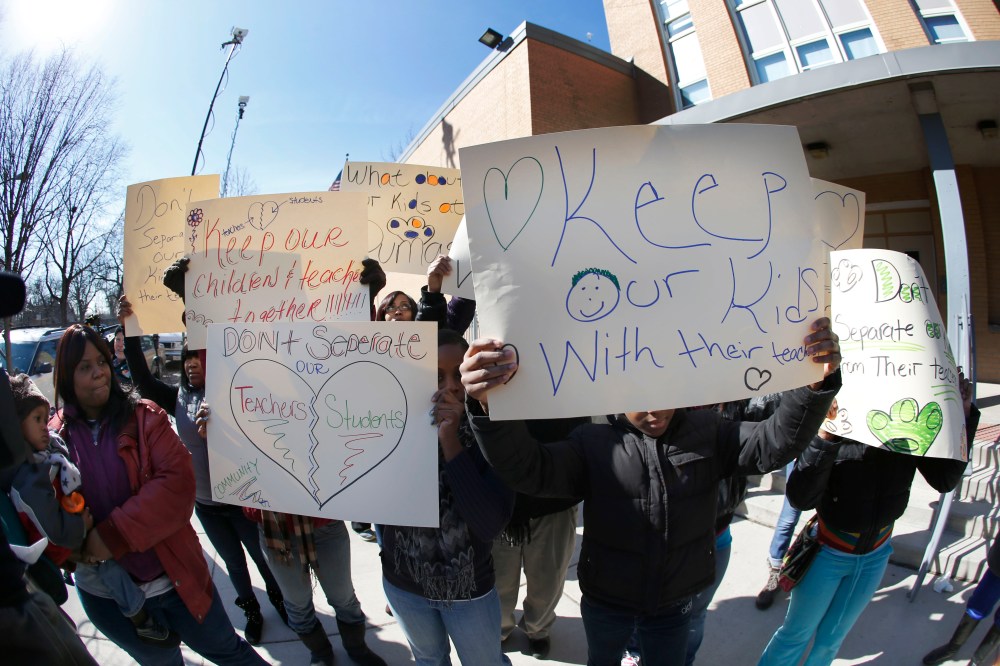 Don't
Separate
our
Kids
their
teachers
students
Keep our
children & teachers
together !!!!!!!!!!
What about
our Kids at
our
DON't SePerate
OUR
Teachers
Students
COMMUNITY
Keep
Our Kids
With their teach
Dont
Separate
From Their teac